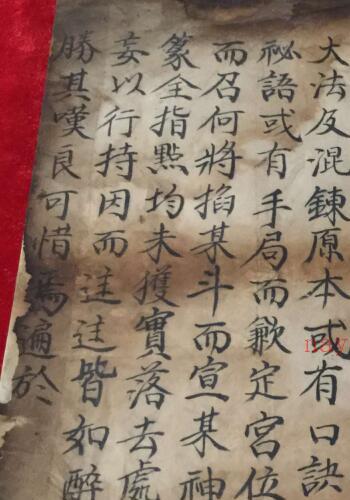 大法及混鍊原本或有口訣
祕語或有手局而歉定宮位
而召何將掐某斗而宣某神
篆全指點均未獲實落去處
妄以行持因而迬迬皆如醉
勝其嘆良可惜焉遍於